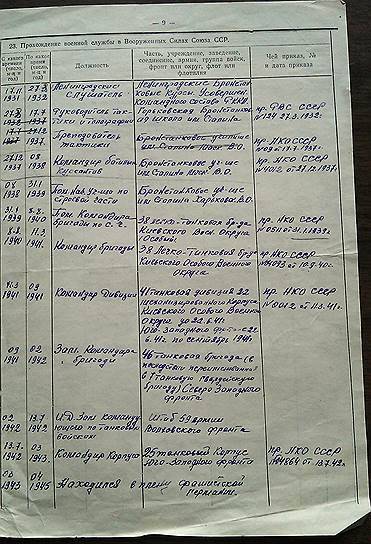 — 9 —
23. Прохождение военной службы в Вооруженных Силах Союза ССР.
С какого времени (число, м-ц и год)
По какое время (число, м-ц и год)
Должность
Часть, учреждение, заведение, соединение, армия, группа войск, фронт или округ, флот или флотилия
Чей приказ, № и дата приказа
17.11 1931
27.3 1932
Слушатель
Ленинградские Бронетанковые Курсы Усоверш. Командного состава РККА
1932
17.7 1937
Руководитель тактики и топографии
Горьковская Бронетанков. школа им. Сталина
пр. РВС СССР №124 27.3.1932г.
1937
27.12 1937
Преподаватель тактики
Бронетанковое училище им. Сталина
пр. НКО СССР
27.12 1937
08 1938
Командир батальона курсантов
Бронетанковое уч-ще им. Сталина В.О.
пр. НКО СССР
08 1938
31.1 1939
Пом. Нач. уч-ща по строевой части
Бронетанковое уч-ще им. Сталина Харьков. В.О.
31.1 1939
8.8 1940
Пом. Командира бригады по с.ч.
38 легко-танковая бр-да Киевского Воен. Округа (Особый)
пр. НКО СССР
8.8 1940
11.3 1941
Командир бригады
38 Легко-Танковая бр-да Киевского Особого Военного Округа
пр. НКО СССР
11.3 1941
09 1941
Командир Дивизии
41 танковая дивизия 22 механизированного Корпуса Киевского Особого Военного Округа до 22.6.41г.
Юго-Западного фр-та с 22.6.41г. по сентябрь 1941г.
пр. НКО СССР №0012 от 11.3.41г.
09 1941
02 1942
Зам. Командира бригады
46 танковая бригада (в последствии переименованная в 7 танковую Гвардейскую бригаду) Северо Западного фронта
02 1942
13.7 1942
И.Д. Зам. Командующего по танковым войскам
Штаб 59 армии Волховского фронта
13.7 1942
03 1943
Командир Корпуса
25 танковый Корпус Юго-Западного фронта
пр. НКО СССР №04864 от 13.7.42г.
03 1943
04 1945
Находился в плену фашистской Германии.